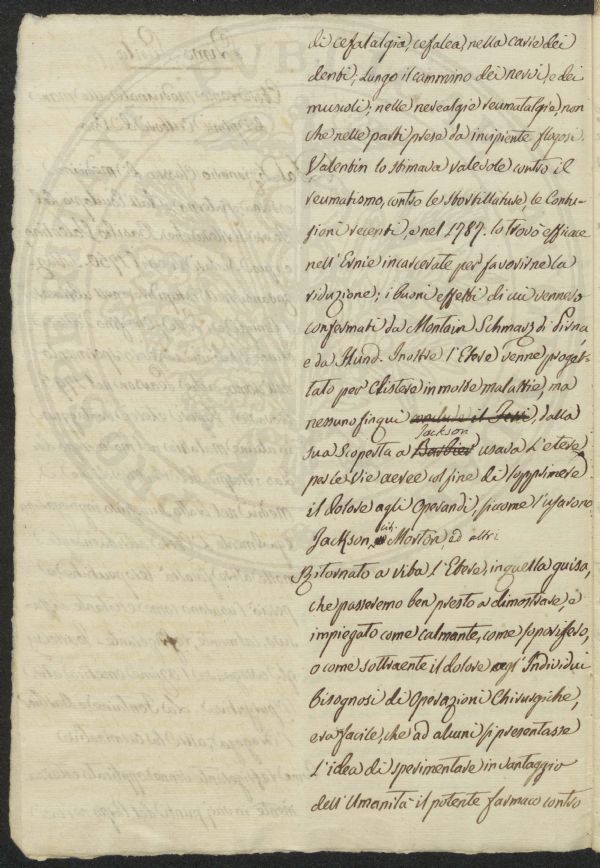 di cefatalgia, cefalea, nella carie dei
denti, lungo il cammino dei nervi, e dei
muscoli; nelle nevealgie reumatalgie, non
che nelle parti prese da incipiente flogosi.
Valentin lo stimava valevole contro il
reumatismo, contro le stortillature, le contu-
sioni recenti, e nel 1787. lo trovò efficace
nell'Ernie incarcerate per favorirne la
riduzione; i buoni effetti di cui vennero
confermati da Montain Schmarz di Pirna,
e da Hund. Inoltre l'Etere venne proget-
tato per Clistere in molte malattie, ma
nessuno finqui conclude il dalla
Jackson
sua scoperta a Barbier usava l'etere
per le vie aeree col fine di sopprimere
il dolore agli Operandi, siccome l'usarono
Jackson, Morton, ed altri
Ritornato a vita l'Etere, in questa guisa,
che passeremo ben presto a dimostrare, e
impiegato come calmante, come soporifero,
o come sottraente il dolore agl'Individui
bisognosi di Operazioni Chirurgiche,
era facile, che ad alcuni si presentasse
l'idea di sperimentare in vantaggio
dell'Umanità il potente farmaco contro